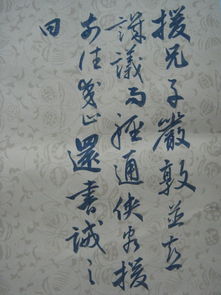 援兄子嚴敦並喜
譏議而輕通俠客援
前在交趾還書誡之
曰